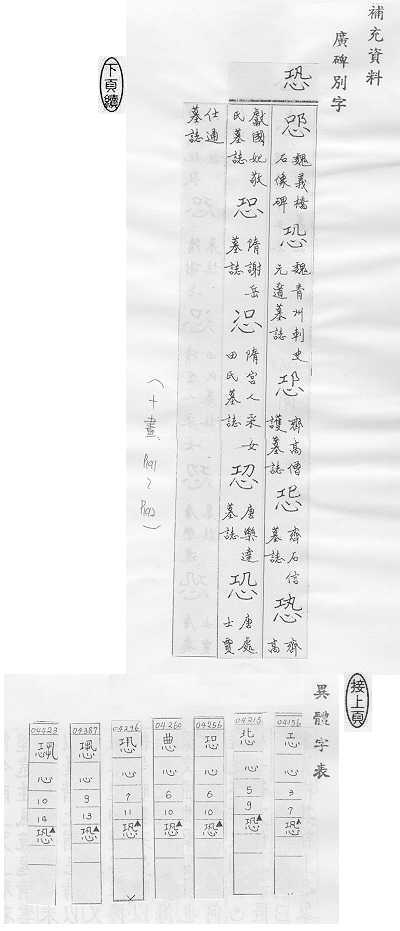 補充資料
廣碑別字
恐
魏義橋石像碑 恐 魏青州刺史元遺墓誌 恐 齊高僧護墓誌 齊石信墓誌 齊高
獻國妃敬氏墓誌 隋謝岳墓誌 隋宮人采女田氏墓誌 唐樂達墓誌 恐 唐處士賈
仕通墓誌
(十畫、P191~P192)
下頁續
接上頁
異體字表
04156 心 3 7 恐▲
04215 心 5 9 恐▲
04256 心 6 10 恐▲
04260 心 6 10 恐▲
04296 心 7 11 恐▲
04387 心 9 13 恐▲
04423 心 10 14 恐▲